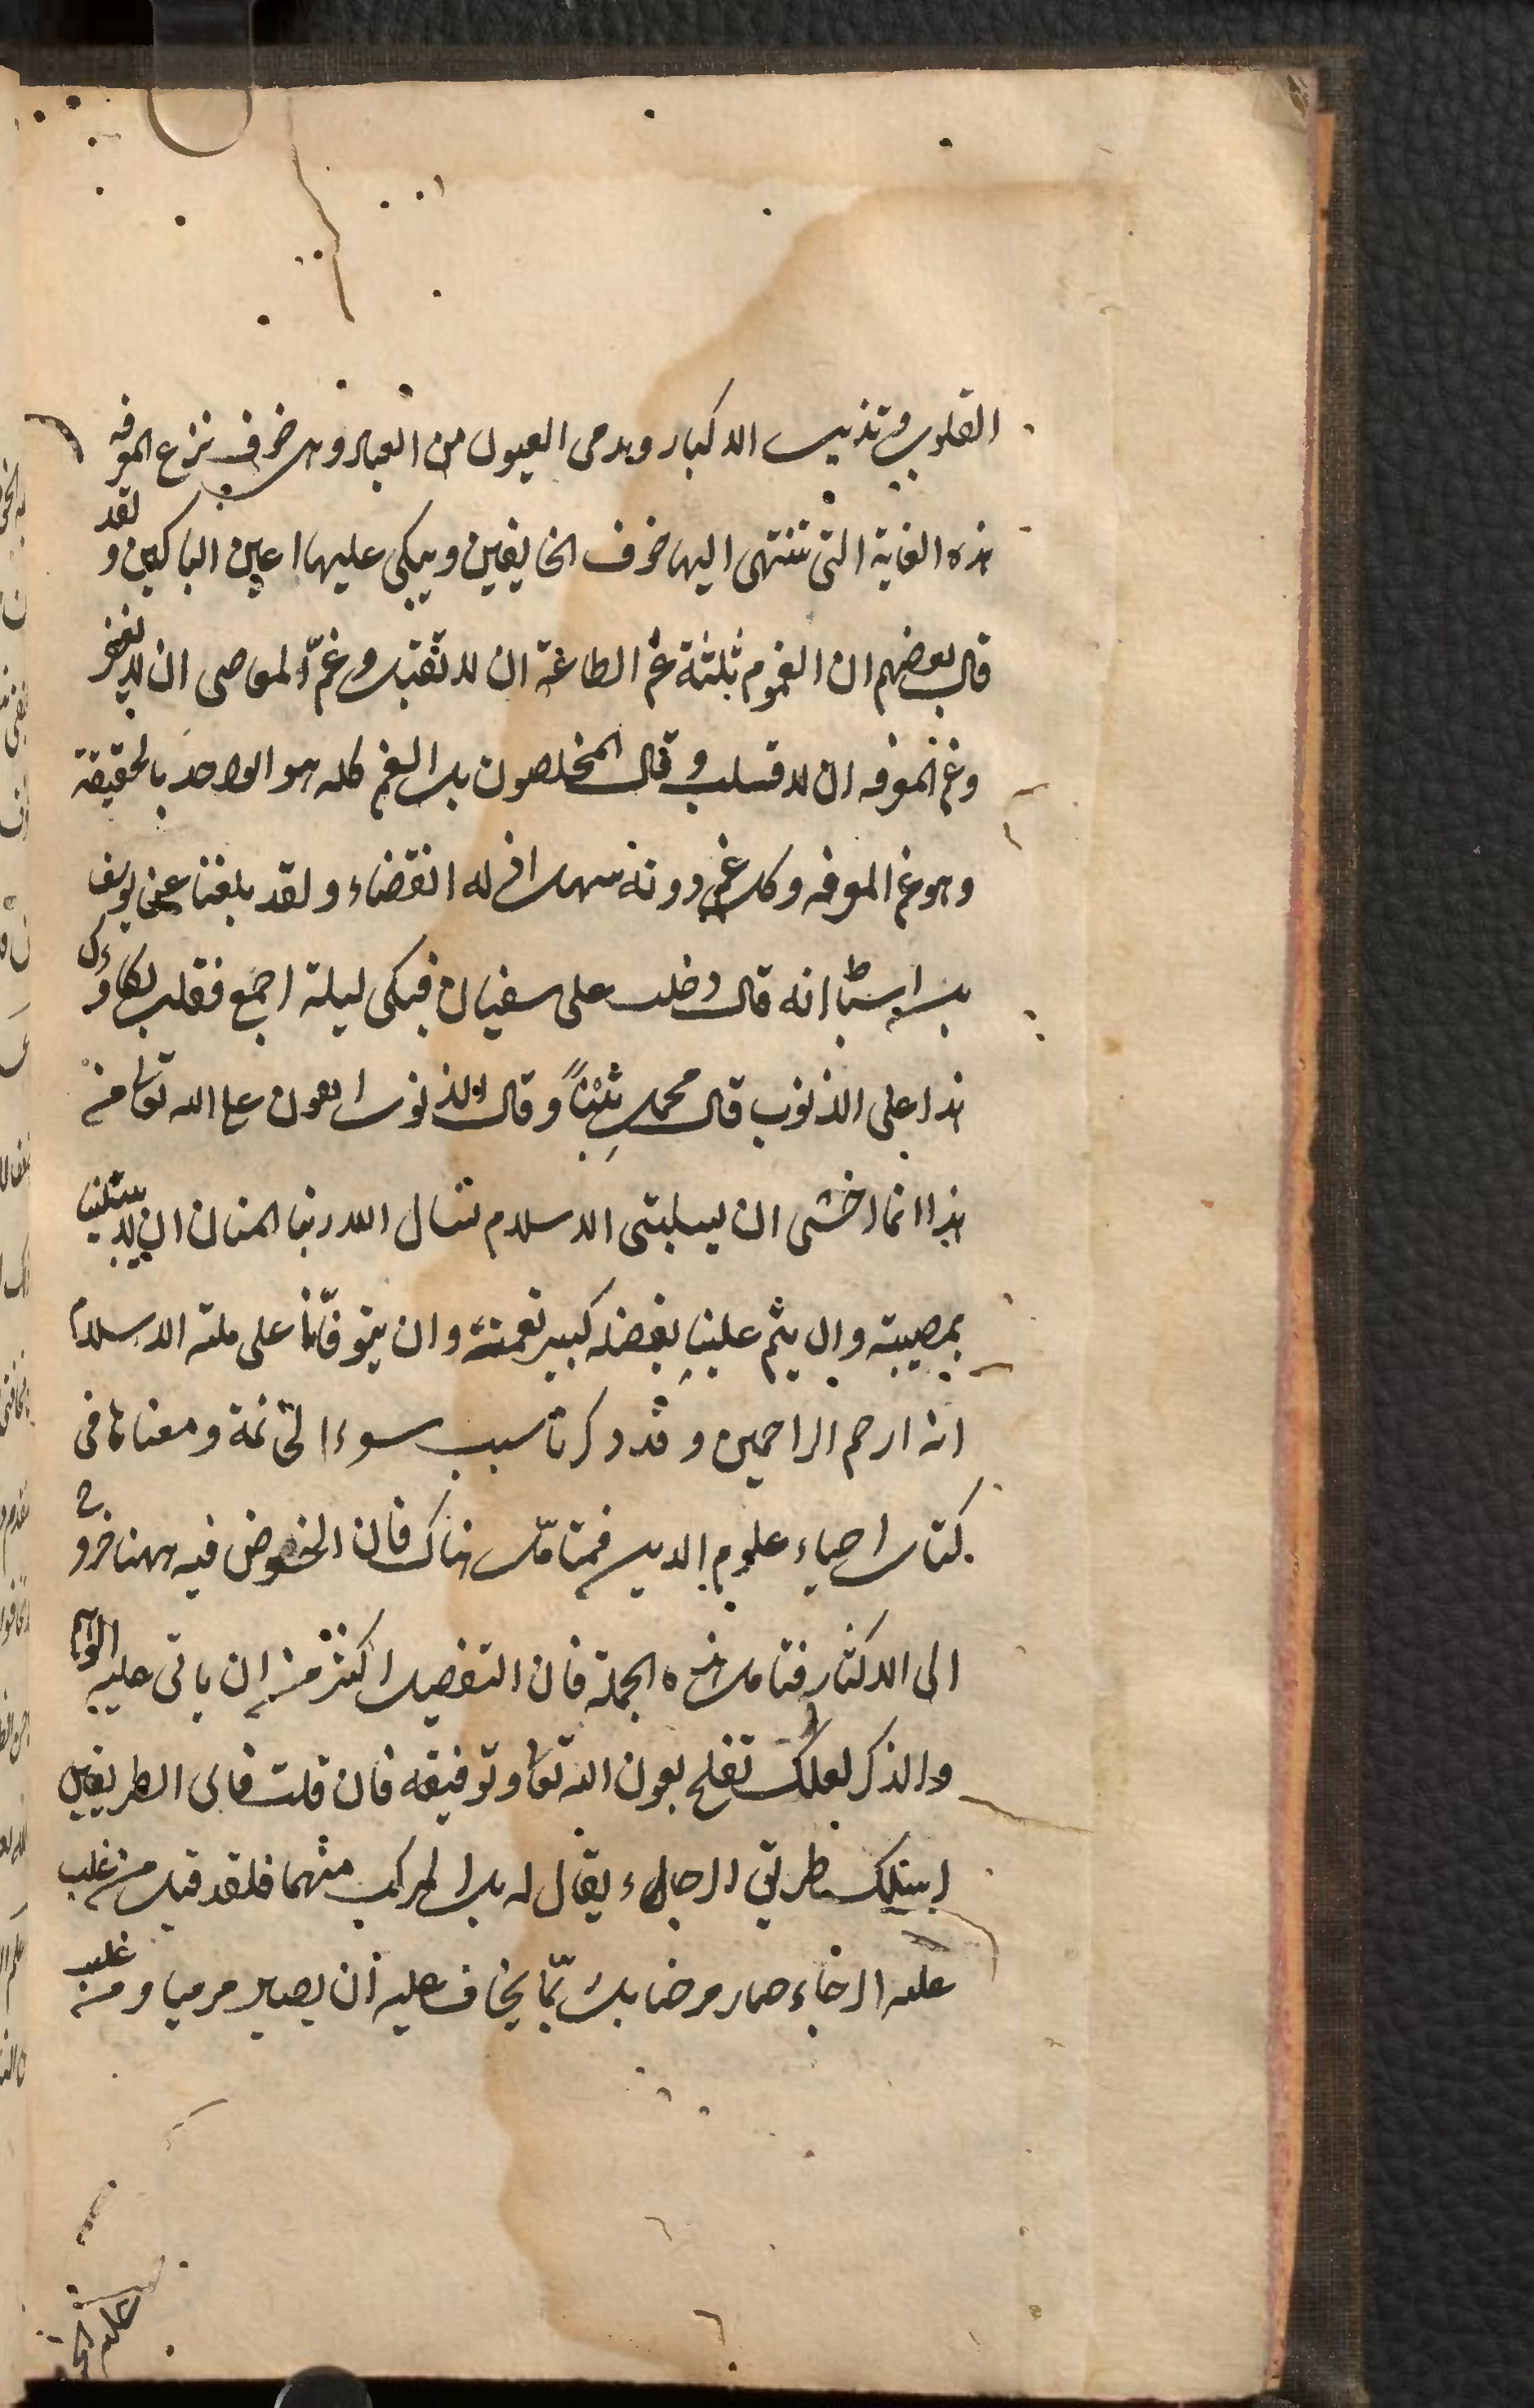 القلوب وتذيب الاكباد ويدمى العيون من العباد وهى خوف نزع المعرفه
هذه الغاية التى تنتهى اليها خوف الخايفين ويبكى عليها اعين الباكين ولقد
قال بعضهم ان الغموم ثلثة غم الطاعة ان لا تقبل وغم المعاصى ان لا يغفر
وغم المعرفه ان لا تسلب وقال المخلصون بل الغم كله هو الواحد بالحقيقة
وهو غم المعرفه وكل غم دونه سهل اذ له انقضاء ولقد بلغنا عن يوسف
بن اسباط انه قال دخلت على سفيان فبكى ليلة اجمع فقلت بكاؤك
هذا على الذنوب قال فحمل تبنا وقال الذنوب اهون على الله تعالى من
هذا انما اخشى ان يسلبنى الاسلام نسال الله ربنا المنان ان لا يبتلينا
بمصيبة وان يتم علينا بفضله كبير نعمته وان يتوفانا على ملة الاسلام
انه ارحم الراحمين وقد ذكرنا سبب سوء الخاتمة ومعناها فى
كتاب احياء علوم الدين فتأمل هناك فان الخوض فيه ههنا خروج
الى الاكثار فتامل هذه الجملة فان التفصيل اكثر من ان ياتى عليه الوهم
والذكر لعلك تفلح بعون الله تعالى وتوفيقه فان قلت فاى الطريقين
اسلك طريق الرجاء يقال له بل المركب منهما فلقد قيل من غلب
عليه الرجاء صار مرضا بل ربما يخاف عليه ان يصير مرميا ومن غلب